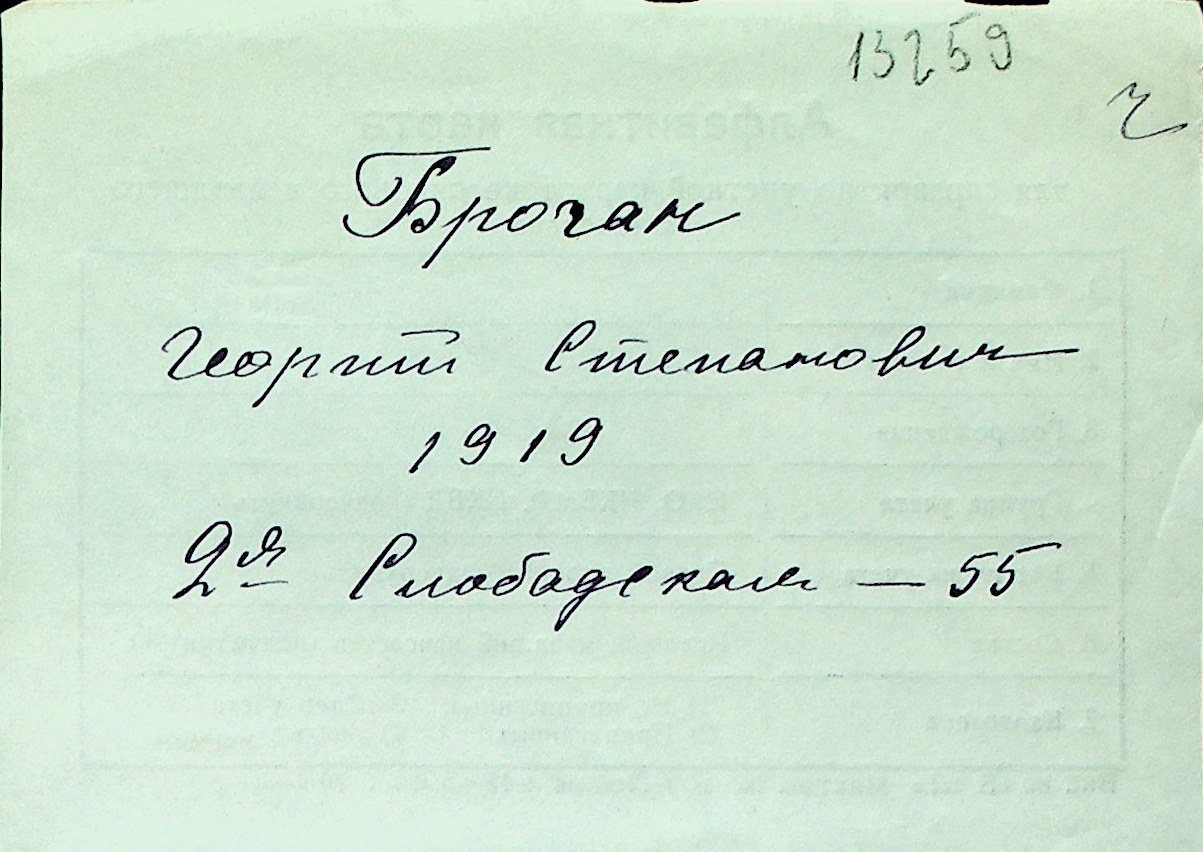 13259
ч
Брочан
Георгий Степанович
1919
2я Слободская — 55